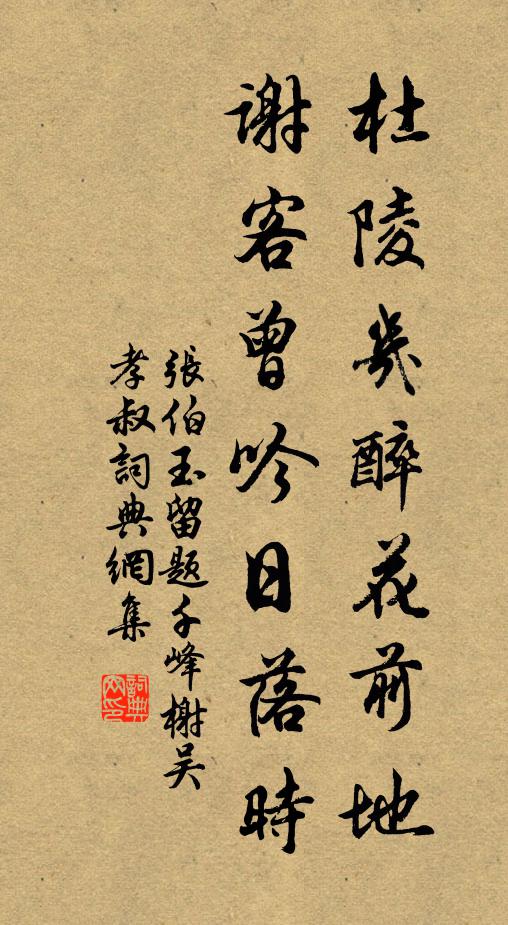 杜陵幾醉花前地
謝客曾吟日落時
張伯玉留題千峰榭吴
孝叔詞典網集
詞典